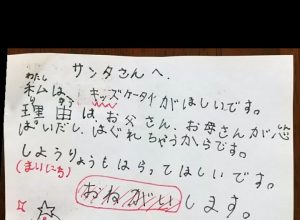 サンタさんへ.
わたし
私は、キッズケータイがほしいです。
り ゆう
理由は、お父さん、お母さんが心
しん
ぱいだし、はぐれちゃうからです。
しようりょうもはらってほしいです。
(まいにち)
おねがいします。